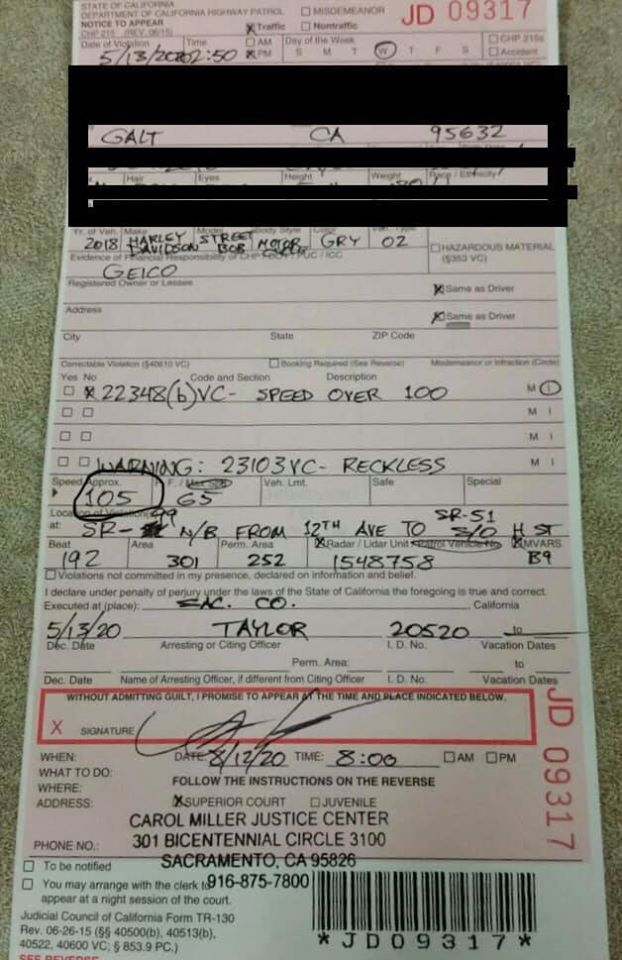 STATE OF CALIFORNIA
DEPARTMENT OF CALIFORNIA HIGHWAY PATROL
☐ MISDEMEANOR
JD 09317
NOTICE TO APPEAR
☒ Traffic ☐ Nontraffic
CHP 215 (REV. 06/15)
Date of Violation Time ☐ AM Day of the Week ☐ CHP 215s
5/13/20 2:50 ☒ PM S M T W T F S ☐ Accident
GALT CA 95632
Hair Eyes Height Weight Race / Ethnicity
Yr. of Veh. Make Model Body Style
2018 HARLEY DAVIDSON STREET BOB MOTOR GRY 02
Evidence of Financial Responsibility
☐ HAZARDOUS MATERIAL
(§353 VC)
GEICO
Registered Owner or Lessee
☒ Same as Driver
Address
☒ Same as Driver
City State ZIP Code
Correctable Violation (§40610 VC) ☐ Booking Required (See Reverse) Misdemeanor or Infraction (Circle)
Yes No Code and Section Description
☐ ☒ 22348(b)VC- SPEED OVER 100 M I
☐ ☐ M I
☐ ☐ M I
☐ ☐ WARNING: 23103VC- RECKLESS M I
Speed Approx. Veh. Lmt. Safe Special
105 65
Location of Violation(s)
at: SR-99 N/B FROM 12TH AVE TO SR-51 S/O H ST
Beat Area Perm. Area ☒ Radar / Lidar Unit Patrol Vehicle No. ☒ MVARS
192 301 252 1548758 B9
☐ Violations not committed in my presence, declared on information and belief.
I declare under penalty of perjury under the laws of the State of California the foregoing is true and correct.
Executed at (place): SAC. CO. California
5/13/20 TAYLOR 20520 to
Dec. Date Arresting or Citing Officer I. D. No. Vacation Dates
Perm. Area: to
Dec. Date Name of Arresting Officer, if different from Citing Officer I. D. No. Vacation Dates
WITHOUT ADMITTING GUILT, I PROMISE TO APPEAR AT THE TIME AND PLACE INDICATED BELOW.
X SIGNATURE
WHEN: DATE: 8/12/20 TIME: 8:00 ☐ AM ☐ PM
WHAT TO DO: FOLLOW THE INSTRUCTIONS ON THE REVERSE
WHERE: ☒ SUPERIOR COURT ☐ JUVENILE
ADDRESS: CAROL MILLER JUSTICE CENTER
301 BICENTENNIAL CIRCLE 3100
SACRAMENTO, CA 95826
PHONE NO.: 916-875-7800
☐ To be notified
☐ You may arrange with the clerk to
appear at a night session of the court.
Judicial Council of California Form TR-130
Rev. 06-26-15 (§§ 40500(b), 40513(b),
40522, 40600 VC; § 853.9 PC.)
SEE REVERSE
*JD09317*
JD 09317